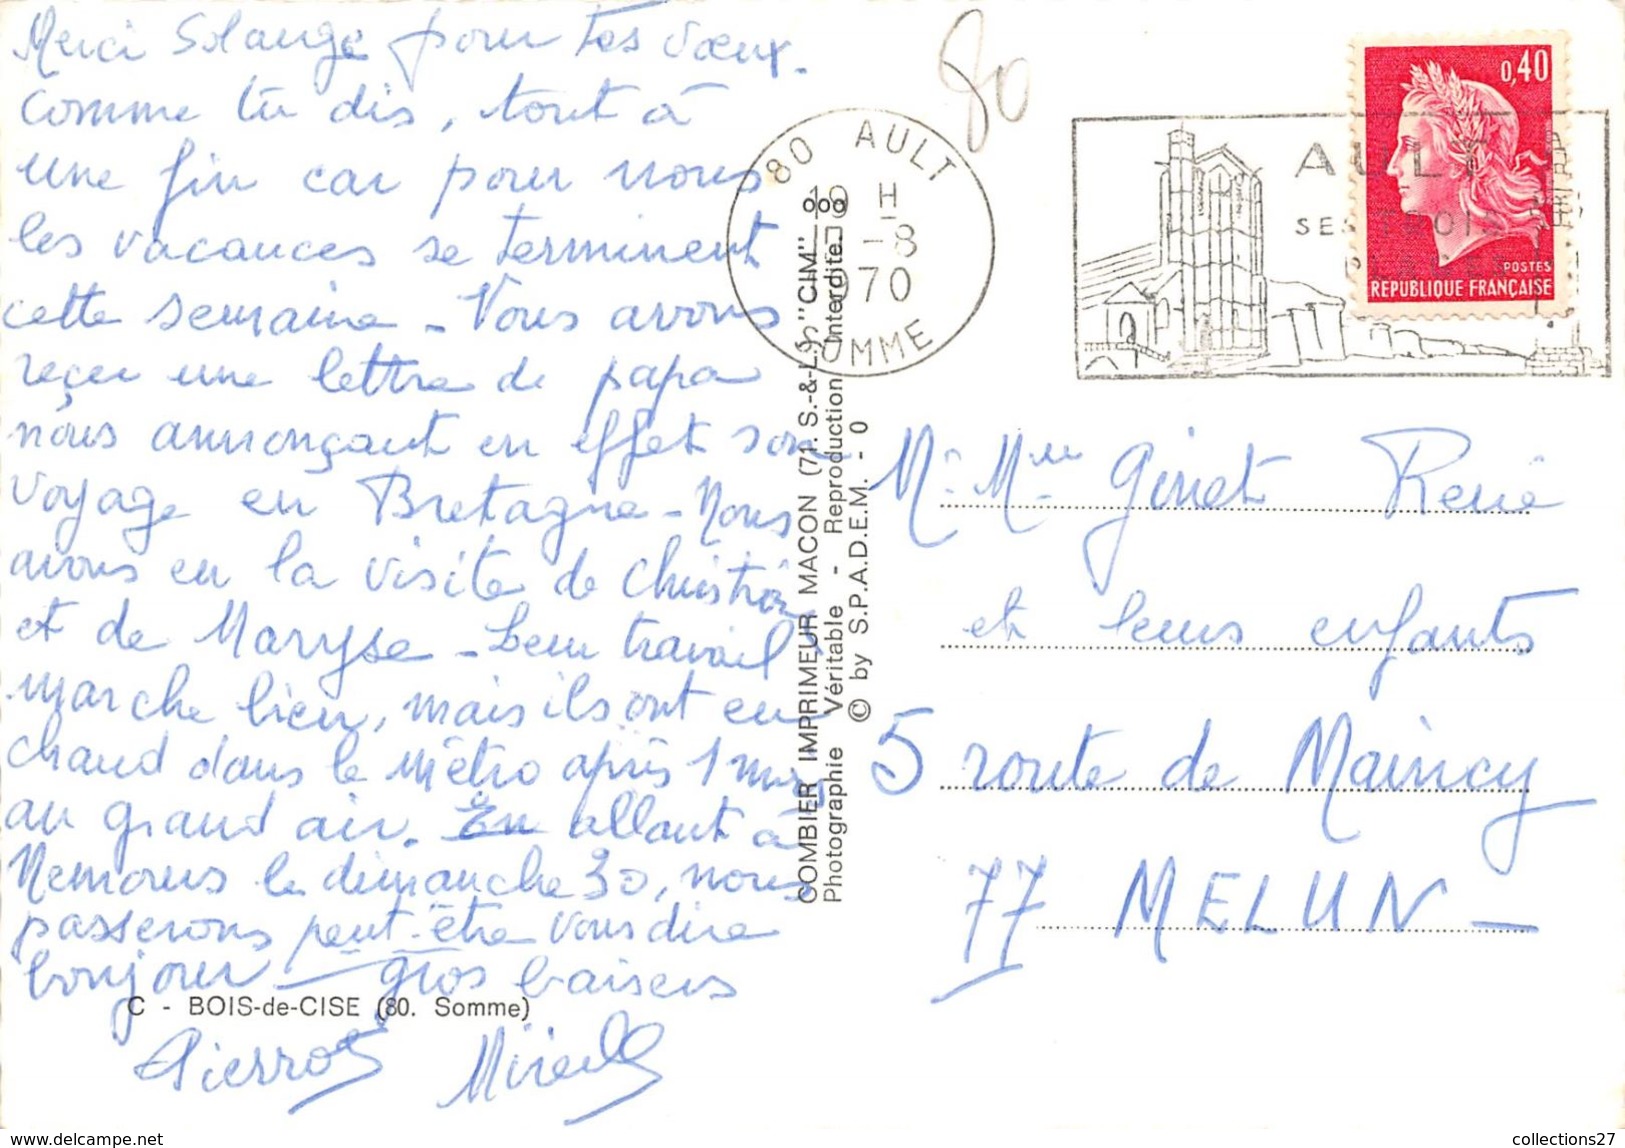 Merci Solange pour tes vœux.
comme tu dis, tout à
une fin car pour nous
les vacances se terminent
cette semaine - Nous avons
reçu une lettre de papa
nous annonçant en effet son
voyage en Bretagne - Nous
avons eu la visite de Christian
et de Maryse - Leur travail
marche bien, mais ils ont eu
chaud dans le métro après 1 mois
au grand air. En allant à
Nemours le dimanche 30, nous
passerons peut-être vous dire
bonjour - gros baisers
C - BOIS-de-CISE (80. Somme)
Pierrot Mireille
COMBIER IMPRIMEUR MACON (71. S.-&-L.) "CIM"
Photographie Véritable - Reproduction Interdite
© by S.P.A.D.E.M. - 0
80
80 AULT
19 H
-8
1970
SOMME
AULT
SES TROIS
0,40
POSTES
REPUBLIQUE FRANÇAISE
Mr Mme Ginet René
et leurs enfants
5 route de Maincy
77 MELUN -
collections27